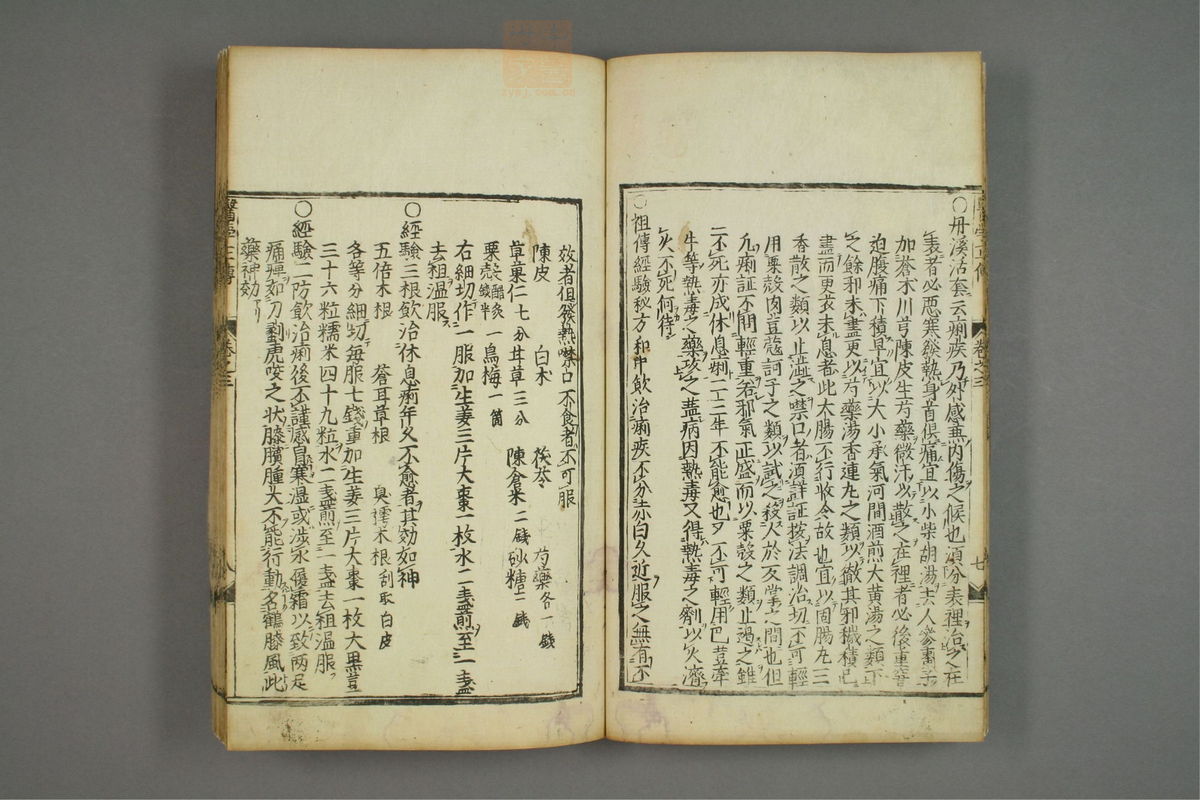 ○丹溪活套云痢疾乃外感兼內傷之候也須分表裡治之在
表者必惡寒發熱身首俱痛宜以小柴胡湯去人參棗子
加蒼朮川芎陳皮生芍藥微汗以散之在裡者必後重窘
迫腹痛下積早宜以大小承氣河間酒煎大黃湯之類下
之餘邪未盡更以芍藥湯香連丸之類以徹其邪穢積已
盡而更衣未息者此大腸不行收令故也宜以固腸丸三
香散之類以止澁之噤口者須詳証按法調治切不可輕
用粟殼肉豆蔲訶子之類以試之殺人於反掌之間也但
凡痢証不問輕重若邪氣正盛而以粟殼之類止遏之雖
不死亦成休息痢二三年不能愈也又不可輕用巴豆牽
牛等熱毒之藥攻之蓋病因熱毒又得熱毒之劑以火濟
火不死何待
○祖傳經驗秘方和中飲治痢疾不分赤白久近服之無有不
效者但發熱噤口不食者不可服
陳皮 白朮 茯苓 芍藥各一錢
草菓仁七分 甘草三分 陳倉米二錢 砂糖二錢
粟殼醋炙一錢半 烏梅一箇
右細切作一服加生姜三片大棗一枚水二盞煎至一盞
去粗温服
○經驗三根飲治休息痢年久不愈者其効如神
五倍木根 蒼耳草根 臭樗木根刮取白皮
各等分細切每服七錢重加生姜三片大棗一枚大黑豆
三十六粒糯米四十九粒水二盞煎至一盞去粗温服
○經驗二防飲治痢後不謹感冒寒温或涉水履霜以致两足
痛痺如刀劙虎咬之状膝臏腫大不能行動名鶴膝風此
藥神効
醫學正傳
卷之三
七
八